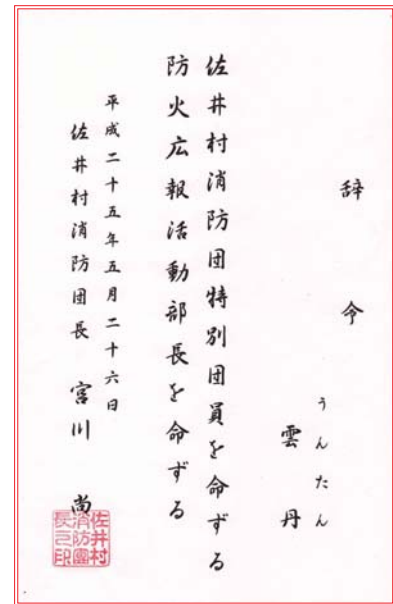 辞令
うんたん
雲丹
佐井村消防団特別団員を命ずる
防火広報活動部長を命ずる
平成二十五年五月二十六日
佐井村消防団長 宮川 尚
佐井村
消防團
長之印